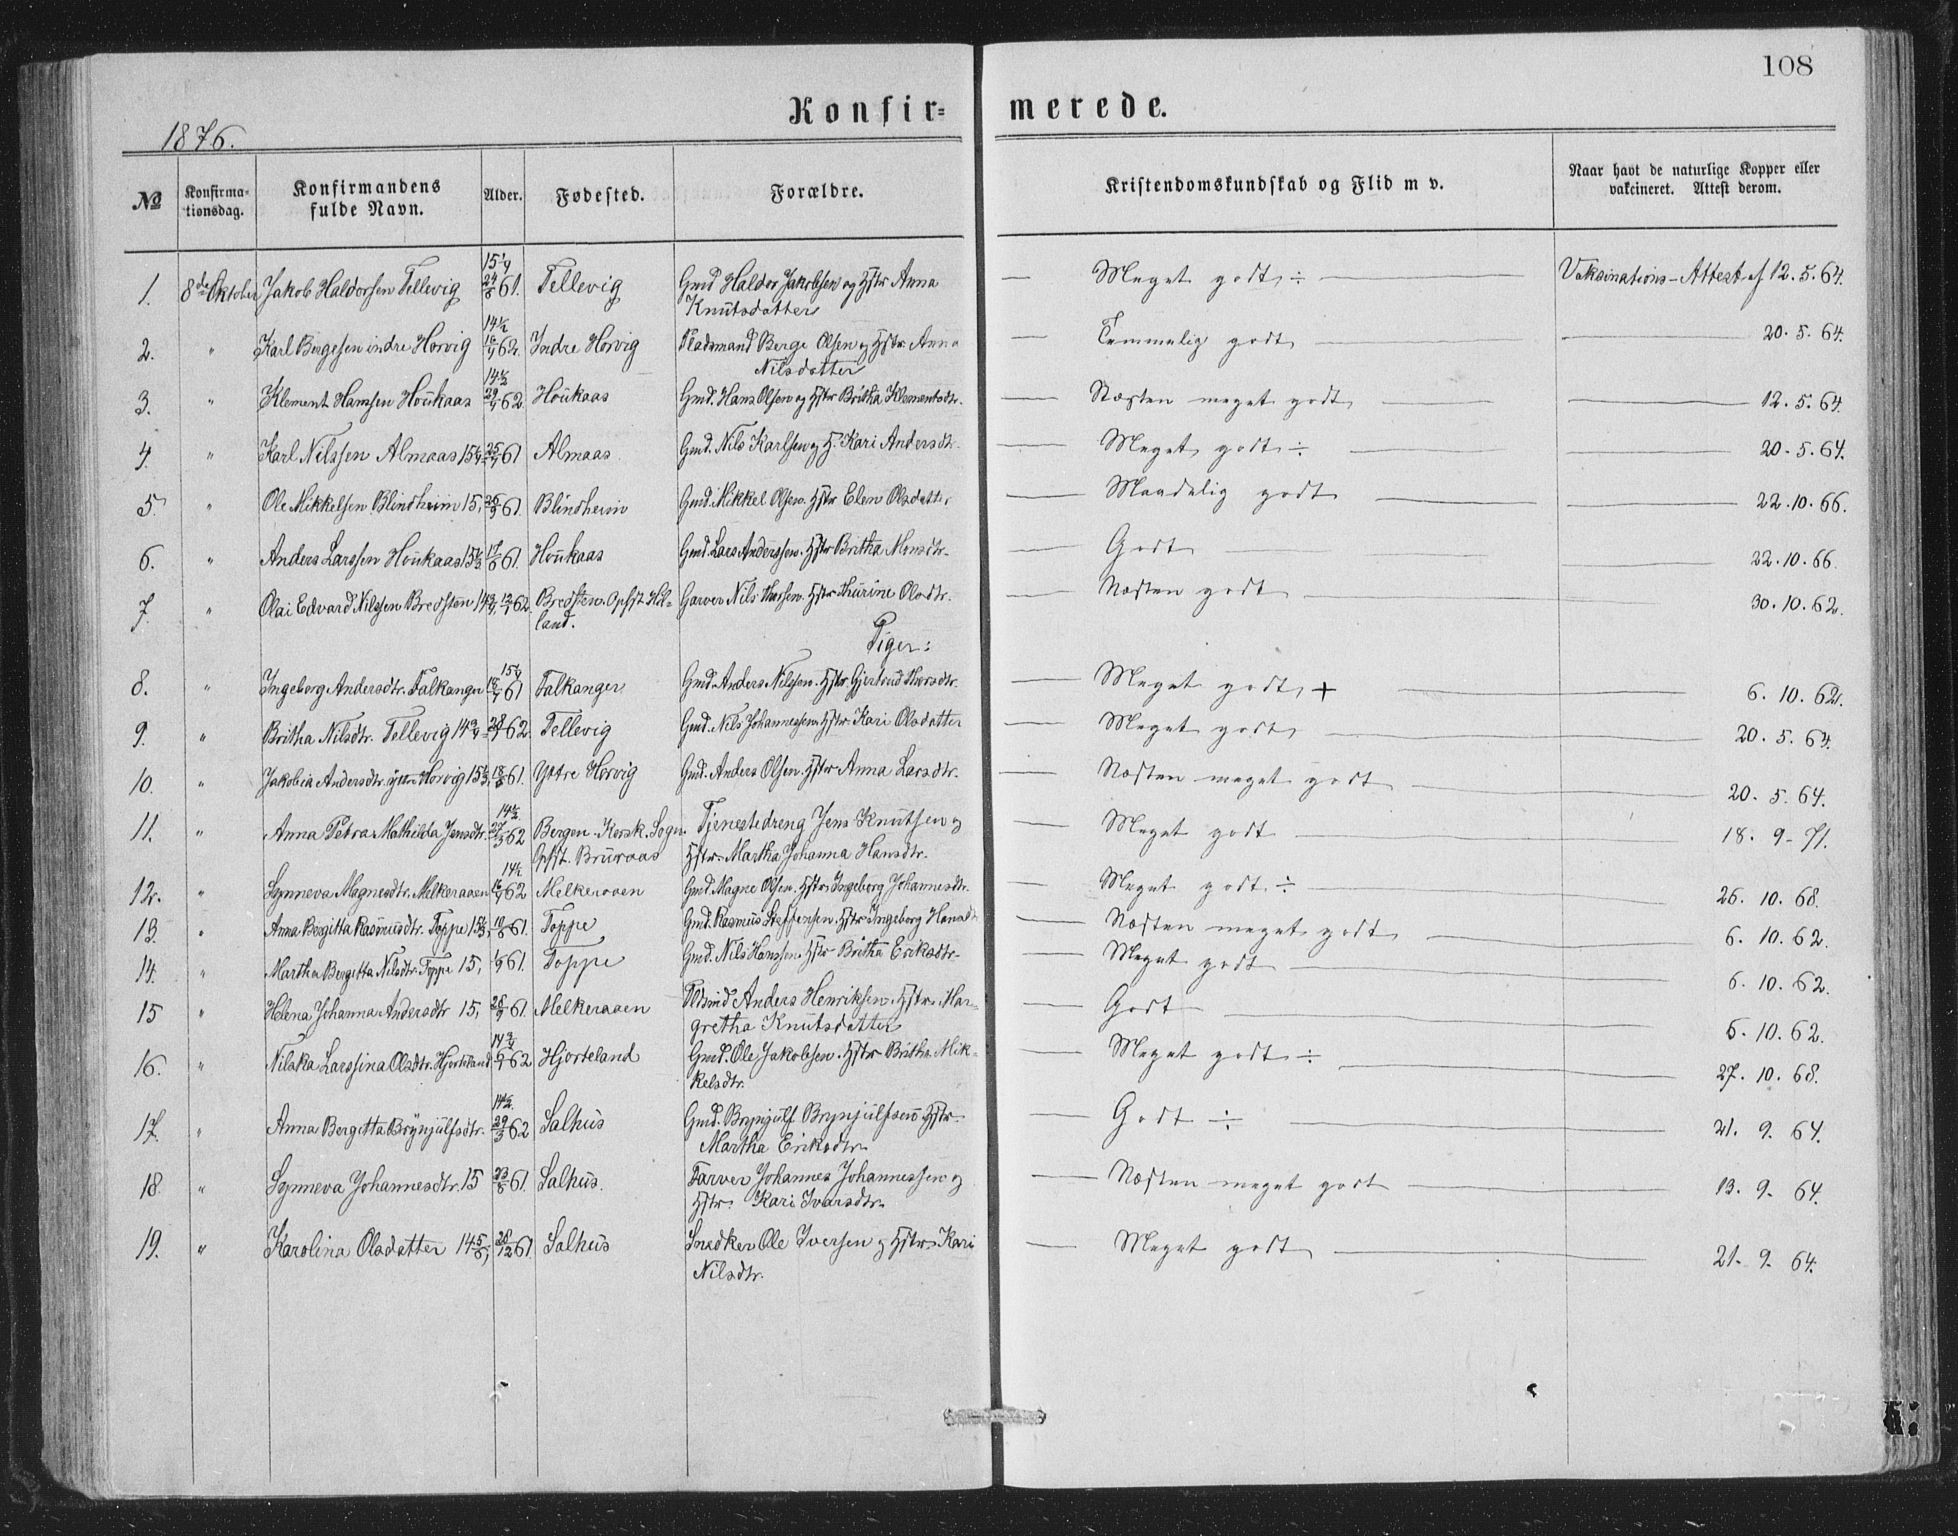 108
Konfir= merede.
1876.
№ Konfirma-tionsdag. Konfirmandens fulde Navn. Alder. Fødested. Forældre. Kristendomskundskab og Flid m v. Naar havt de naturlige Kopper eller vakcineret. Attest derom.
1. 8de Oktober Jakob Haldorsen Tellevig 15 1/4 24/6 61. Tellevig Gmd Haldor Jakobsen og Hstr Anna — Meget godt ÷ Vaksinations-Attest af 12.5.64.
Knutsdatter
2. " Karl Bergesen indre Horvig 14 1/2 16/4 62. Indre Horvig Pladsmand Berge Olsen og Hstr Anna — Temmelig godt — 20.5.64.
Nilsdatter
3. " Klement Hansen Houkaas 14 1/2 29/4 62 Houkaas Gmd. Hans Olsen og Hstr Britha Klementsdtr. — Næsten meget godt — 12.5.64.
4. " Karl Nilssen Almaas 15 1/4 61 Almaas Gmd. Nils Karlsen og H. Kari Andersdtr. — Meget godt ÷ — 20.5.64.
5. " Ole Mikkelsen Blindheim 15, 26/9 61. Blindheim Gmd. Mikkel Olsen. Hstr Elen Olsdatter — Maadelig godt — 22.10.66.
6. " Anders Larssen Houkaas 15 1/3 17/6 61. Houkaas Gmd. Lars Anderssen. Hstr Britha Monsdtr. — Godt — 22.10.66.
7. " Olai Edvard Nilssen Bredsten 14 3/4, 12/1 62. Bredsten. Opfst. Hil- Garver Nils Thorsen. Hstr Thurine Olsdtr. — Næsten godt — 30.10.62.
land.
Piger:
8. " Ingeborg Andersdtr. Falkanger 15 1/4 18/7 61 Falkanger Gmd. Anders Nilssen. Hstr. Gjertrud Thorsdtr. — Meget godt + — 6.10.62.
9. " Britha Nilsdtr. Tellevig 14 3/4 28/1 62. Tellevig Gmd. Nils Johannessen. Hstr Kari Olsdatter — Meget godt — 20.5.64.
10. " Jakobia Andersdtr. ytre Horvig 15 1/3, 18/6 61. Ystre Horvig Gmd. Anders Olsen. Hstr Anna Larsdtr. — Næsten meget godt — 20.5.64.
11. " Anna Petra Mathilda Jensdtr. 14 1/2 27/3 62 Bergen. Korsk. Sogn. Tjenestedreng Jens Knutsen og — Meget godt — 18.9.71.
Opfst. Bruraas Hstr. Martha Johanna Hansdtr.
12. " Synneva Magnesdtr. Melkeraaen 14 1/2 16/4 62 Melkeraaen Gmd. Magne Olsen. Hstr. Ingeborg Johannesdtr. — Meget godt ÷ — 26.10.68.
13. " Anna Bergitta Rasmusdtr. Toppe 15 1/3, 10/6 61. Toppe Gmd. Rasmus Steffensen. Hstr Ingeborg Hansdtr — Næsten meget godt — 6.10.62.
14. " Martha Bergetta Nilsdtr. Toppe 15, 1/9 61. Toppe Gmd. Nils Hanssen. Hstr Britha Eriksdtr. — Meget godt — 6.10.62.
15 " Helena Johanna Andersdtr 15, 28/9 61. Melkeraaen Anders Henriksen. Hstr. Mar- — Godt — 6.10.62.
gretha Knutsdatter
16. " Nilska Larssina Olsdtr. Hjorteland 14 3/4 62 Hjorteland Gmd. Ole Jakobsen. Hstr Britha Mik- — Meget godt ÷ — 27.10.68.
kelsdtr.
17. " Anna Bergitta Brynjulfsdtr. 14 1/2 29/3 62 Salhus Gmd. Brynjulf Brynjulfsen Hstr. — Godt ÷ — 21.9.64.
Martha Eriksdtr.
18 " Synneva Johannesdtr. 15 23/8 61. Salhus. Farver Johannes Johannessen og — Næsten meget godt — 13.9.64.
Hstr. Kari Ivarsdtr.
19. " Karolina Olsdatter 14 5/6, 28/12 61. Salhus Snedker Ole Iversen og Hstr. Kari — Meget godt — 21.9.64.
Nilsdtr.